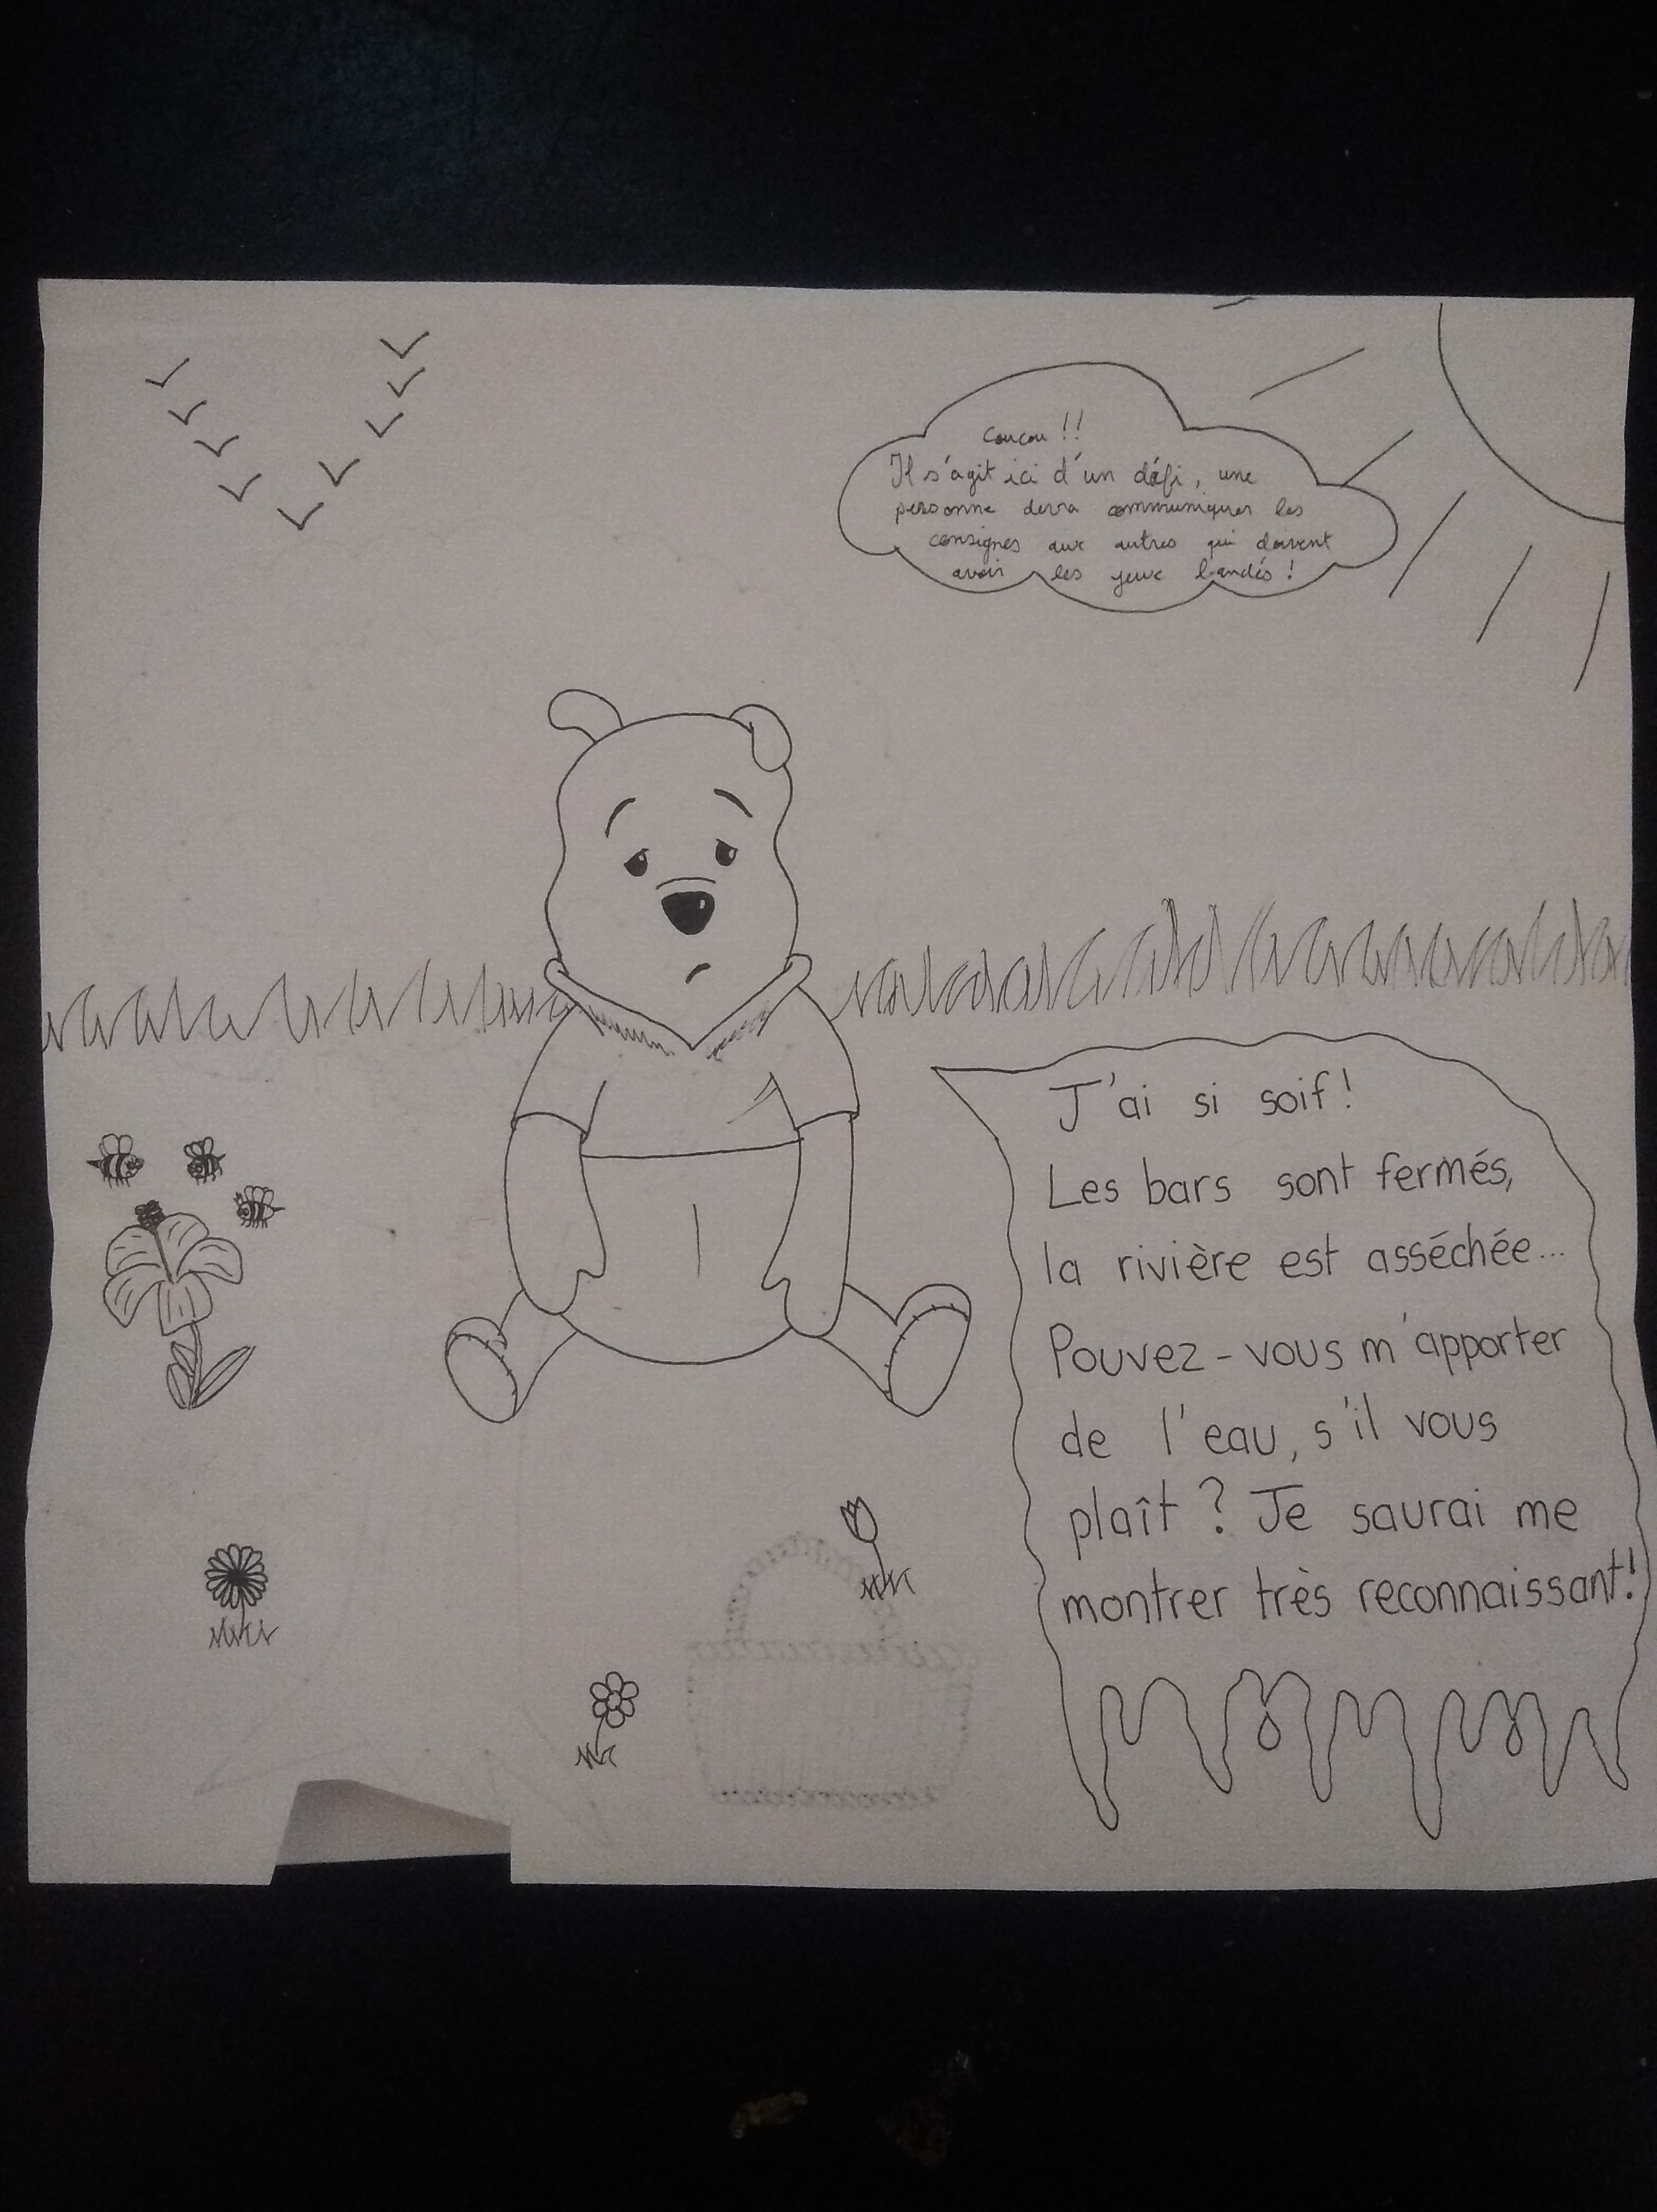 Coucou !!
Il s'agit ici d'un défi, une
personne devra communiquer les
consignes aux autres qui doivent
avoir les yeux bandés !
J'ai si soif !
Les bars sont fermés,
la rivière est asséchée...
Pouvez-vous m'apporter
de l'eau, s'il vous
plaît ? Je saurai me
montrer très reconnaissant !